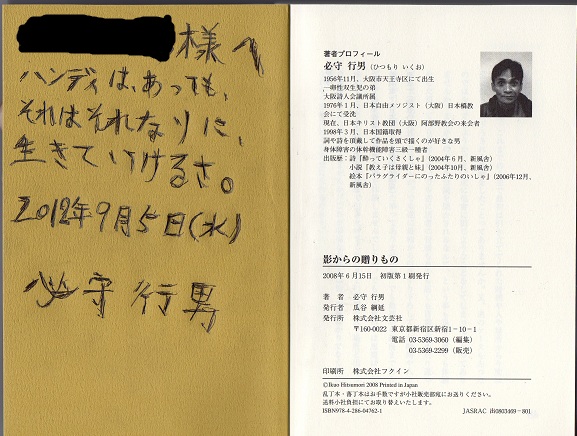 様へ
ハンディは、あっても、
それはそれなりに、
生きていけるさ。
2012年9月5日(水)
必守 行男
著者プロフィール
必守 行男（ひつもり いくお）
1956年11月、大阪市天王寺区にて出生
一卵性双生児の弟
大阪詩人会議所属
1976年1月、日本自由メソジスト（大阪）日本橋教
会にて受洗
現在、日本キリスト教団（大阪）阿部野教会の来会者
1998年3月、日本国籍取得
詞や詩を頂戴して作品を頭で描くのが好きな男
身体障害の体幹機能障害三級一種者
出版歴：詩『酔っていくさくしゃ』（2004年6月、新風舎）
小説『教え子は母親と妹』（2004年10月、新風舎）
絵本『パラグライダーにのったふたりのいしゃ』（2006年12月、
新風舎）
影からの贈りもの
2008年6月15日 初版第1刷発行
著 者 必守 行男
発行者 瓜谷 綱延
発行所 株式会社文芸社
〒160-0022 東京都新宿区新宿1－10－1
電話 03-5369-3060（編集）
03-5369-2299（販売）
印刷所 株式会社フクイン
©Ikuo Hitsumori 2008 Printed in Japan
乱丁本・落丁本はお手数ですが小社販売部宛にお送りください。
送料小社負担にてお取り替えいたします。
ISBN978-4-286-04762-1 JASRAC 出0803469－801